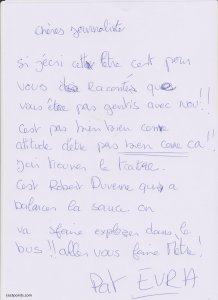 chères journaliste
si j'écri cette lêtre cest pour
vous racontés que
vous êtes pas gentis avec nou!!
cest pas bien bien come
atitude d'être pas bien come ca!!
j'ai trouver le traitre.
cest Robert Duverne qui a
balancer la sauce. on
va sfaire explozer dans le
bus!! allez vous faire Mètre!
Pat EVRA